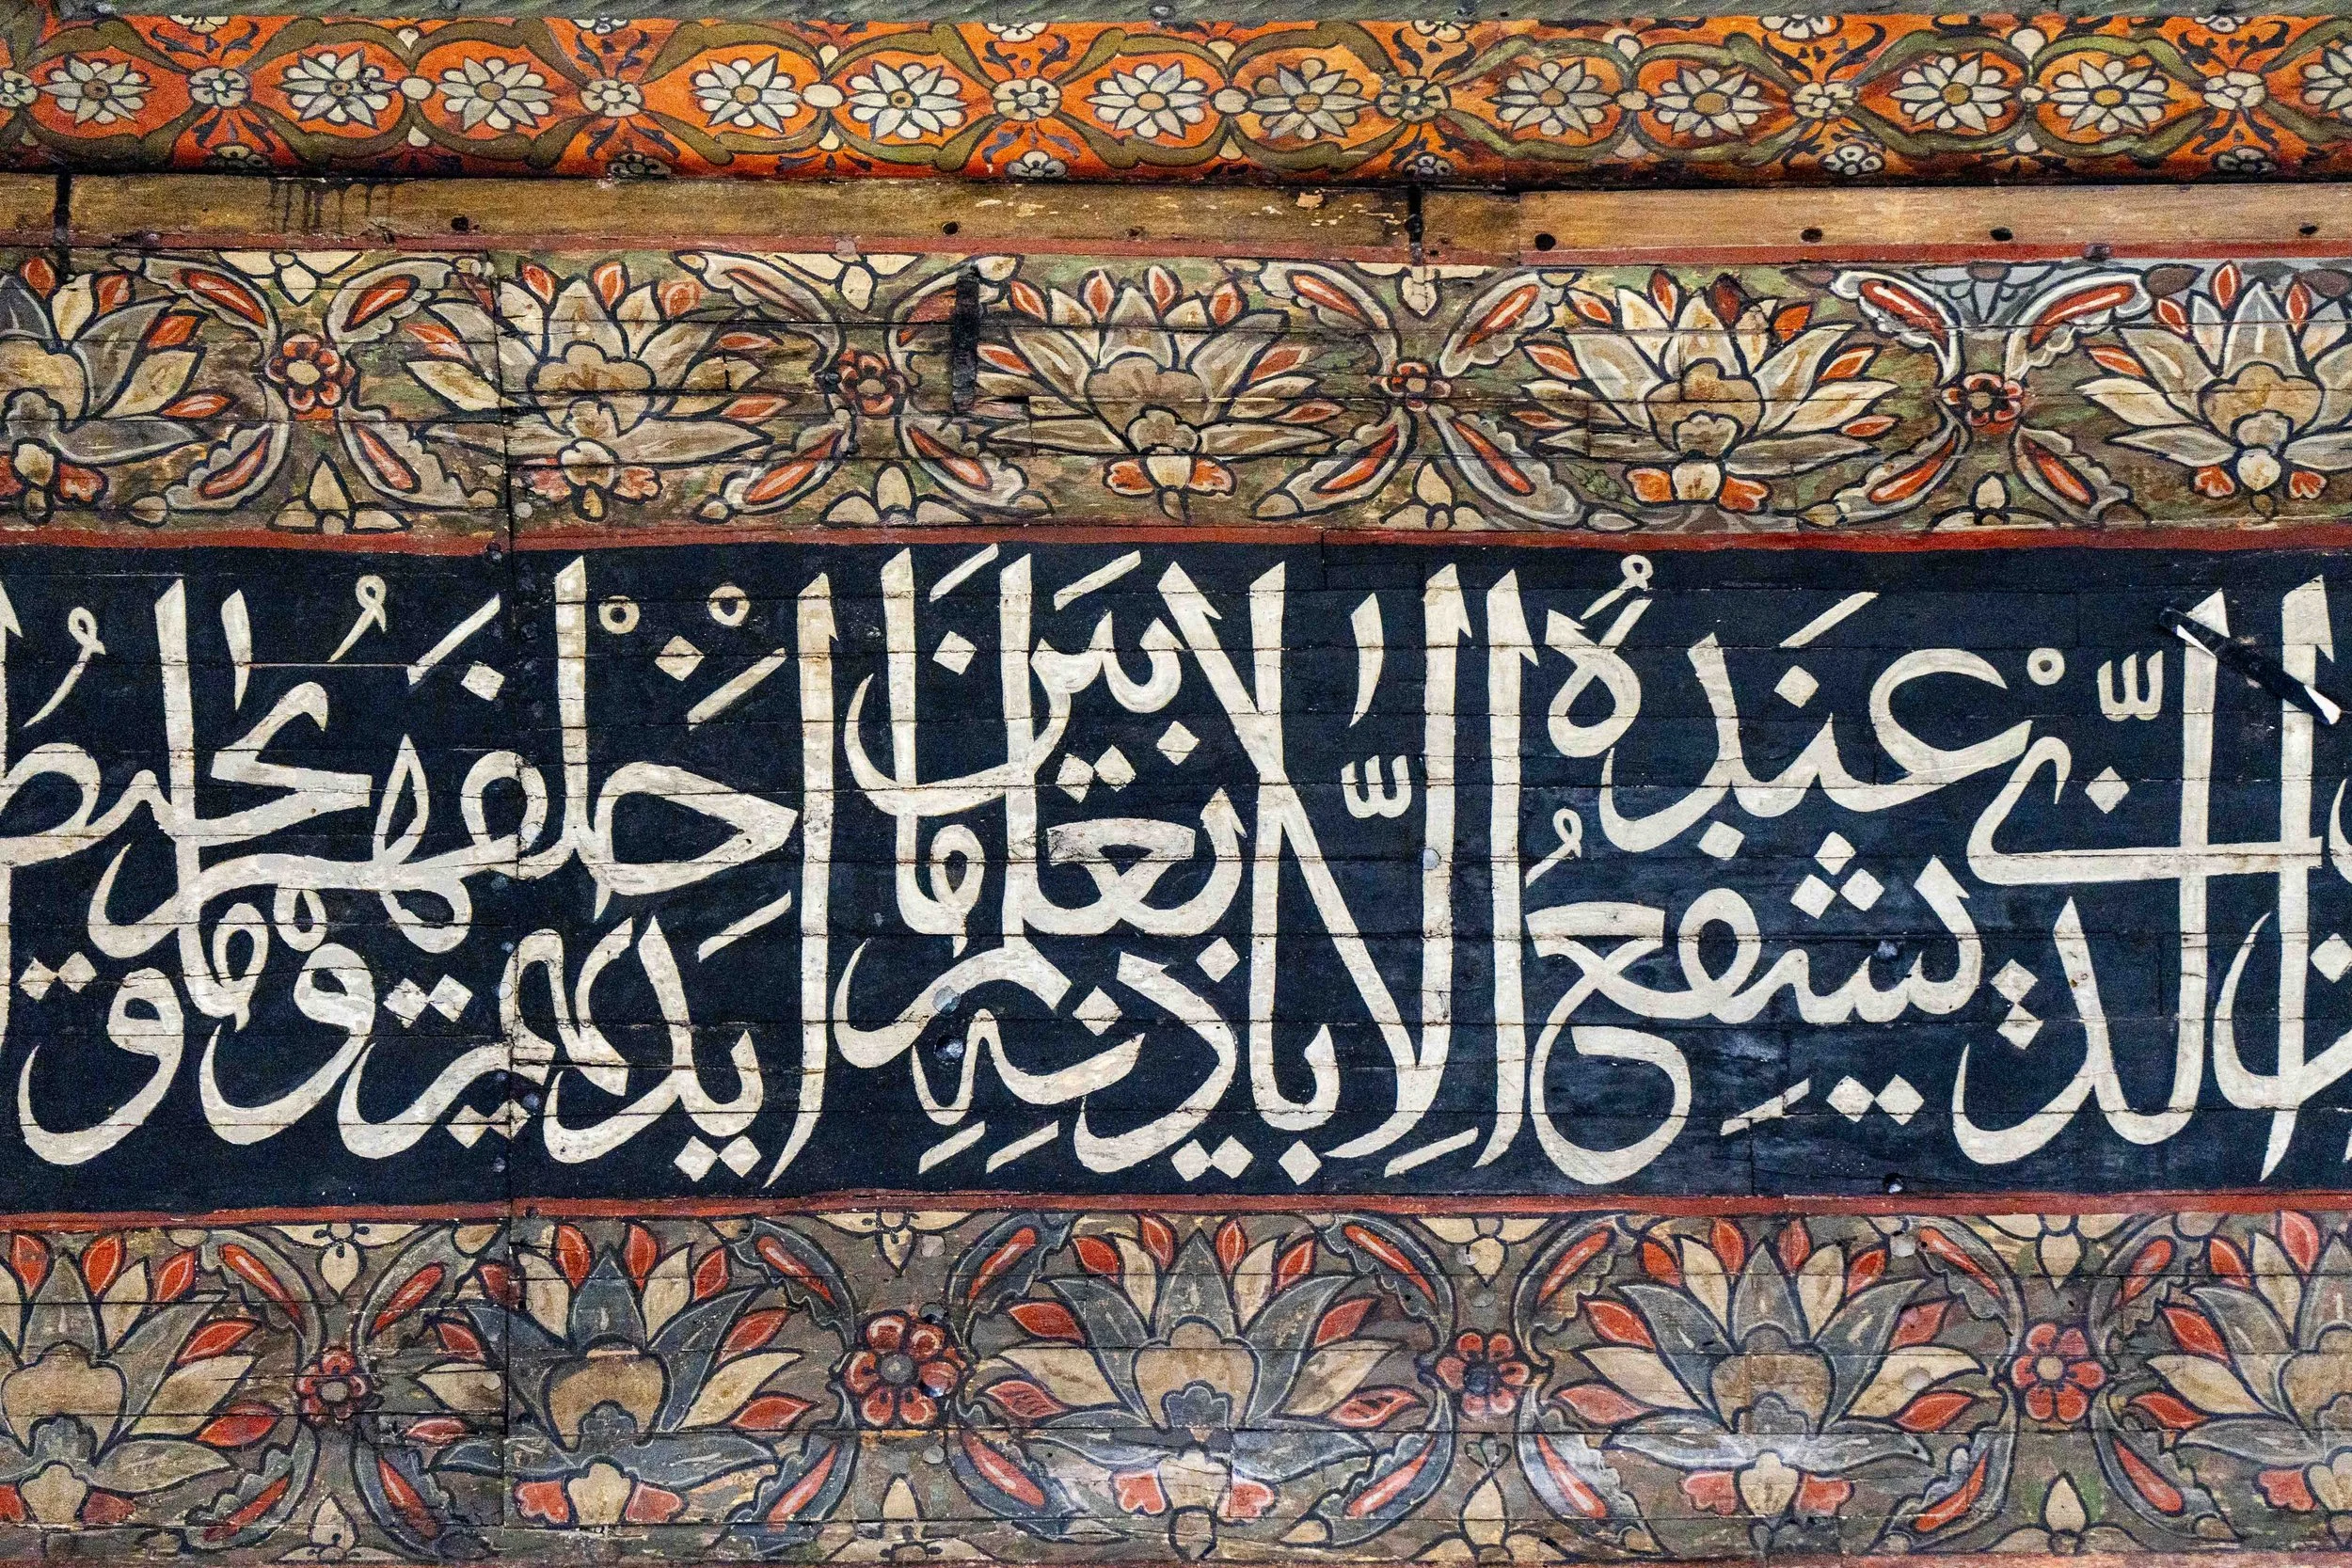 الذي يشفع عنده الا باذنه يعلم ما بين ايديهم وما خلفهم ولا